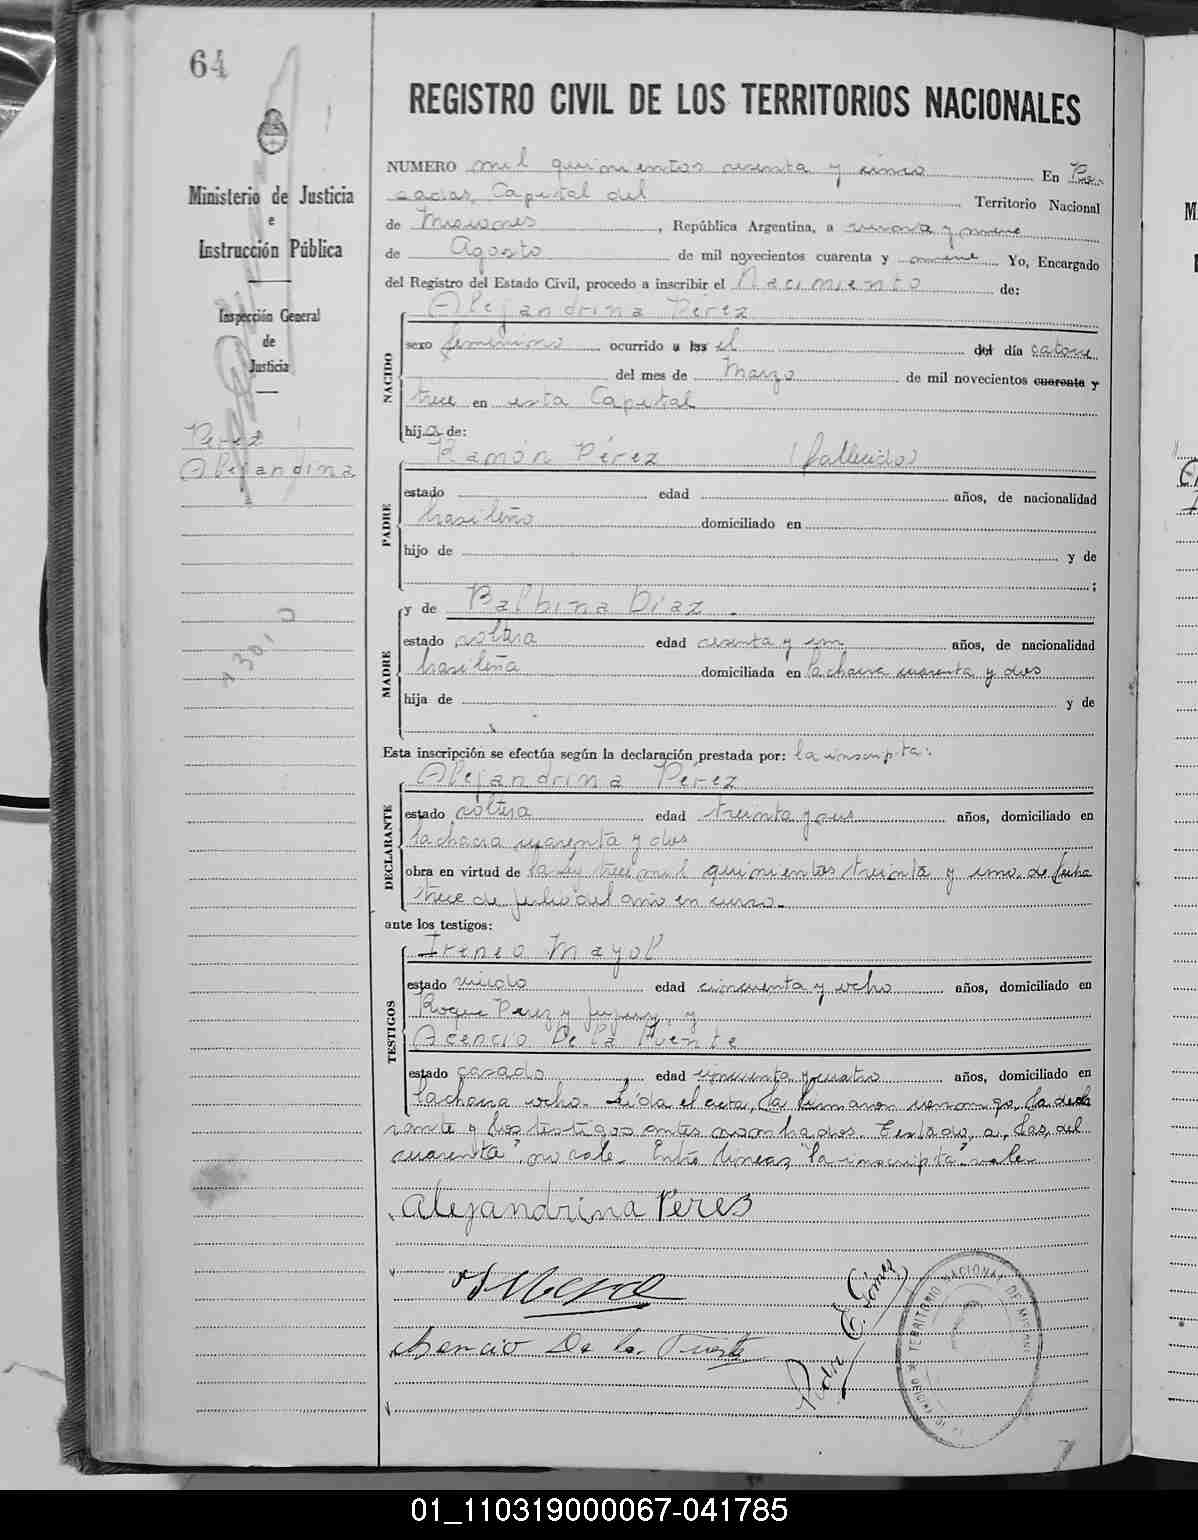 64
Ministerio de Justicia
e
Instrucción Pública
Inspección General
de
Justicia
Perez
Alejandina
1301
REGISTRO CIVIL DE LOS TERRITORIOS NACIONALES
NUMERO mil quinientos sesenta y cinco En Po-
sadas, Capital del Territorio Nacional
de Misiones, República Argentina, a y nueve
de Agosto de mil novecientos cuarenta y nueve Yo, Encargado
del Registro del Estado Civil, procedo a inscribir el Nacimiento de:
NACIDO
Alejandrina Pérez
sexo femenino ocurrido a las el del día catorce
del mes de Marzo de mil novecientos cuarenta y
trece en esta Capital
hija de:
PADRE
Ramón Pérez (fallecido)
estado edad años, de nacionalidad
brasileño domiciliado en
hijo de y de
;
MADRE
y de Balbina Díaz.
estado soltera edad sesenta y un años, de nacionalidad
brasileña domiciliada en la chacra cuarenta y dos
hija de y de
Esta inscripción se efectúa según la declaración prestada por: la inscripta:
DECLARANTE
Alejandrina Pérez
estado soltera edad treinta y seis años, domiciliado en
la chacra cuarenta y dos
obra en virtud de la ley trece mil quinientos treinta y uno de fecha
trece de julio del año en curso.
ante los testigos:
TESTIGOS
Ireneo Mayol
estado viudo edad cincuenta y ocho años, domiciliado en
Roque Perez y Jujuy, y
Acencio De la Fuente
estado casado edad cincuenta y cuatro años, domiciliado en
la chacra ocho. Leída el acta, la firmaron conmigo, la decla
rante y los testigos antes nombrados. Testado, a, las, del
cuarenta", no vale. Entre líneas, "la inscripta" vale.
Alejandrina Péres
Asencio De la Fuente
Pedro E. Gómez
TERRITORIO NACIONAL DE MISIONES
01_110319000067-041785